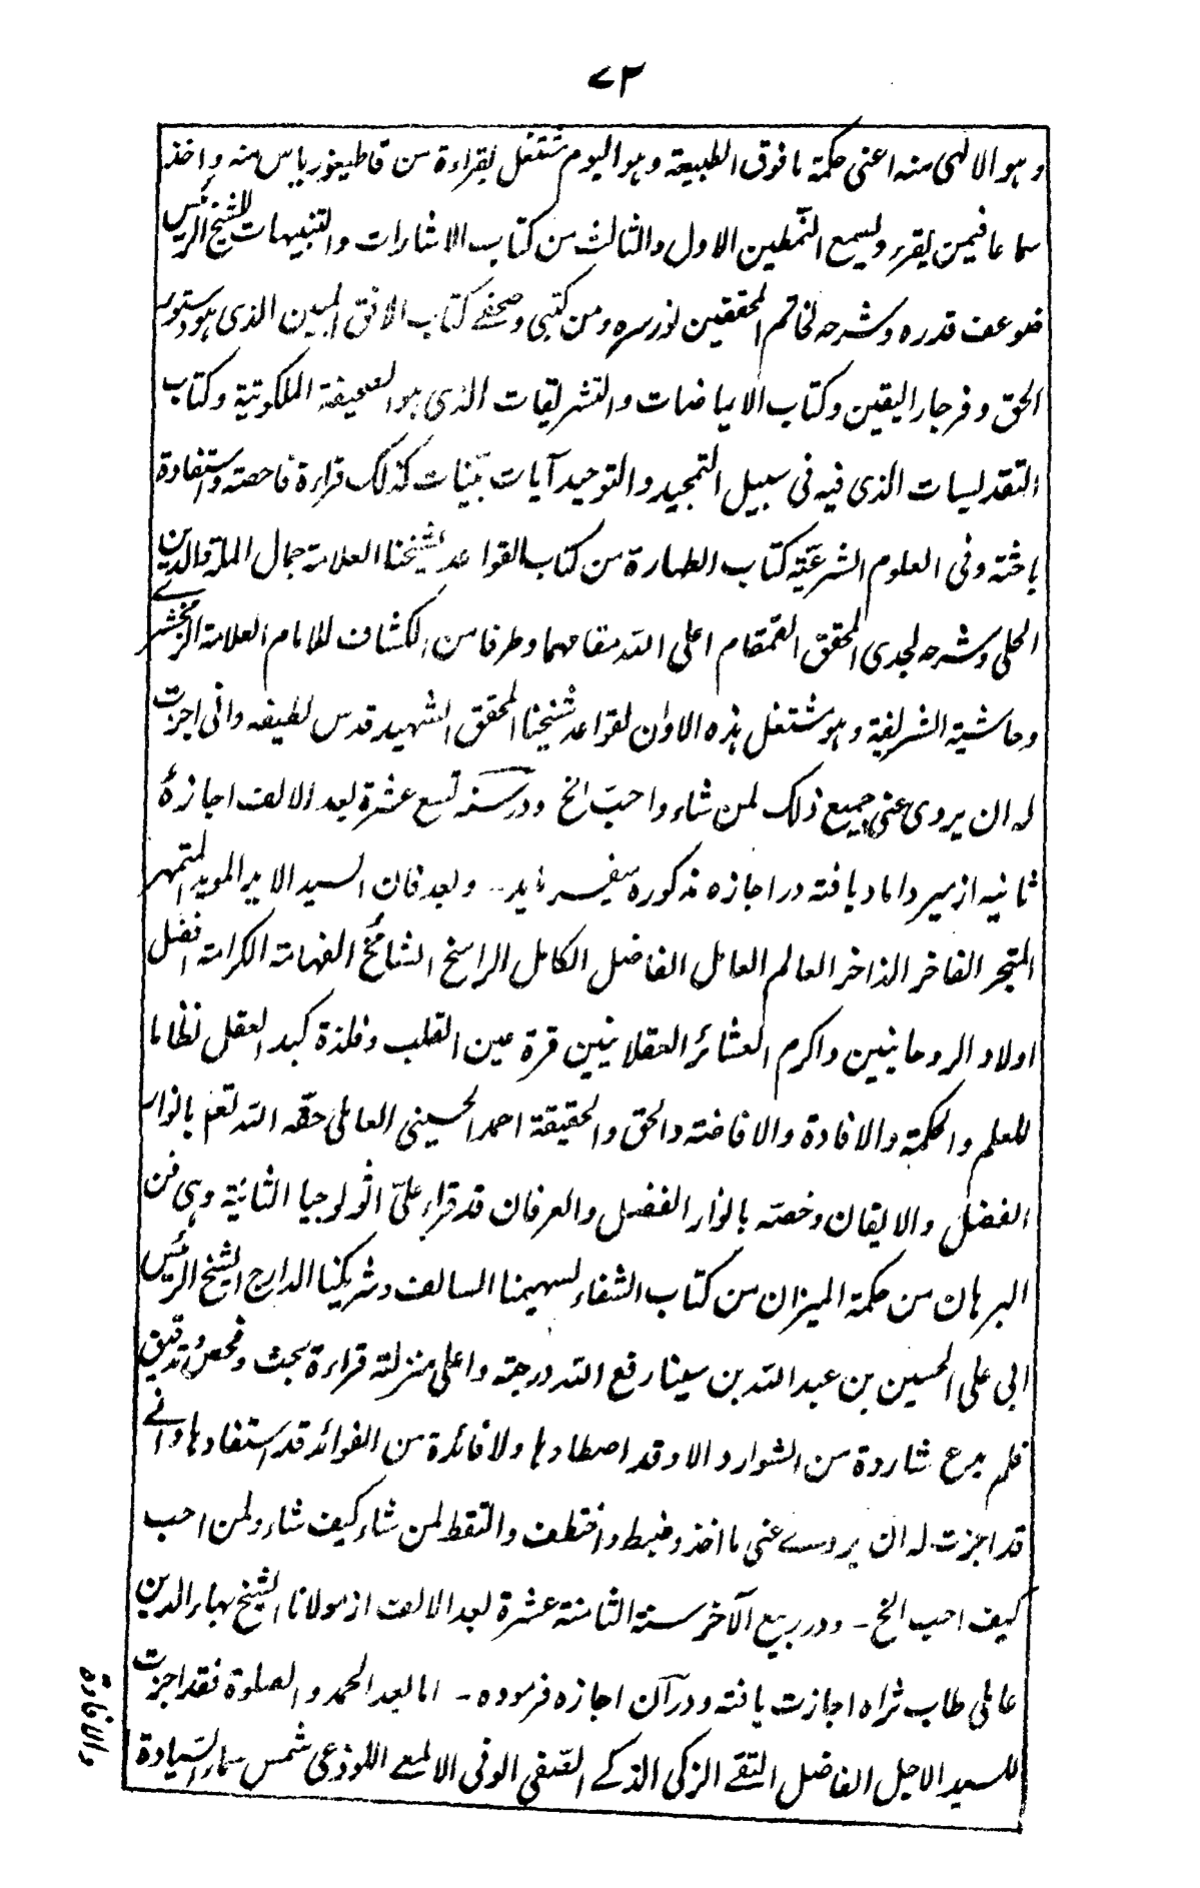 ۷۲
وهو الالهى منه اعنى حكمة ما فوق الطبيعة وهو اليوم مشتغل بقراءة من قاطيغورياس منه واخذ
سماعا فيمن يقرء ويسمع النمطين الاول والثالث من كتاب الاشارات والتنبيهات للشيخ الرئيس
ضوعف قدره وشرحه لخاتم المحققين نور سره ومن كتبى وصحفے كتاب الافق المبين الذى هو دستور
الحق وفرجار اليقين وكتاب الايماضات والتشريقات الذى هو الصحيفة الملكوتية وكتاب
التقديسات الذى فيه فى سبيل التمجيد والتوحيد آيات بيّنات كذلك قراءة فاحصة واستفادة
باحثة وفى العلوم الشرعيّة كتاب الطهارة من كتاب القواعد لشيخنا العلامة جمال الملة والدين
الحلى وشرحه لجدى المحقق القمقام اعلى الله مقامهما وطرفا من الكشاف للامام العلامة الزمخشرے
وحاشية الشريفية وهو مشتغل هذه الاوان لقواعد شيخنا المحقق الشهيد قدس لطيفه وانى اجزت
له ان يروى عنى جميع ذلك لمن شاء واحبّ الخ ودر سنه تسع عشرة بعد الالف اجازهٔ
ثانيه از مير داماد يافته در اجازه مذكوره ميفرمايد - وبعد فان السيد الايد المويد المتمهر
المتبحر الفاخر الذاخر العالم العامل الفاضل الكامل الراسخ الشامخ الفهامة الكرامة افضل
اولاد الروحانيين واكرم العشائر العقلانيين قرة عين القلب وفلذة كبد العقل نظاما
للعلم والحكمة والافادة والافاضة والحق والحقيقة احمد الحسينى العاملى حقّه الله تعم بانوار
الفضل والايقان وخصّه بانوار الفضل والعرفان قد قراء علىّ اثولوجيا الثانية وهى فن
البرهان من حكمة الميزان من كتاب الشفاء لسهيمنا السالف وشريكنا الدارج الشيخ الرئيس
ابى على الحسين بن عبد الله بن سينا رفع الله درجته واعلى منزلته قراءة بحث وفحص وتدقيق
فلم يدع شاردة من الشوارد الا وقد اصطادها ولا فائدة من الفوائد قد استفادها وانے
قد اجزت له ان يروے عنى ما اخذ وضبط واختطف والتقط لمن شاء كيف شاء ولمن احب
كيف احب الخ - ودر ربيع الآخر سنة الثامنة عشرة بعد الالف از مولانا الشيخ بهاء الدين
عاملى طاب ثراه اجازت يافته ودر آن اجازه فرموده - اما بعد الحمد والصلوة فقد اجزت
للسيد الاجل الفاضل التقے الزكى الذكے الصّفى الوفى الالمعے اللوذعى شمس سماء السّيادة
والافادة